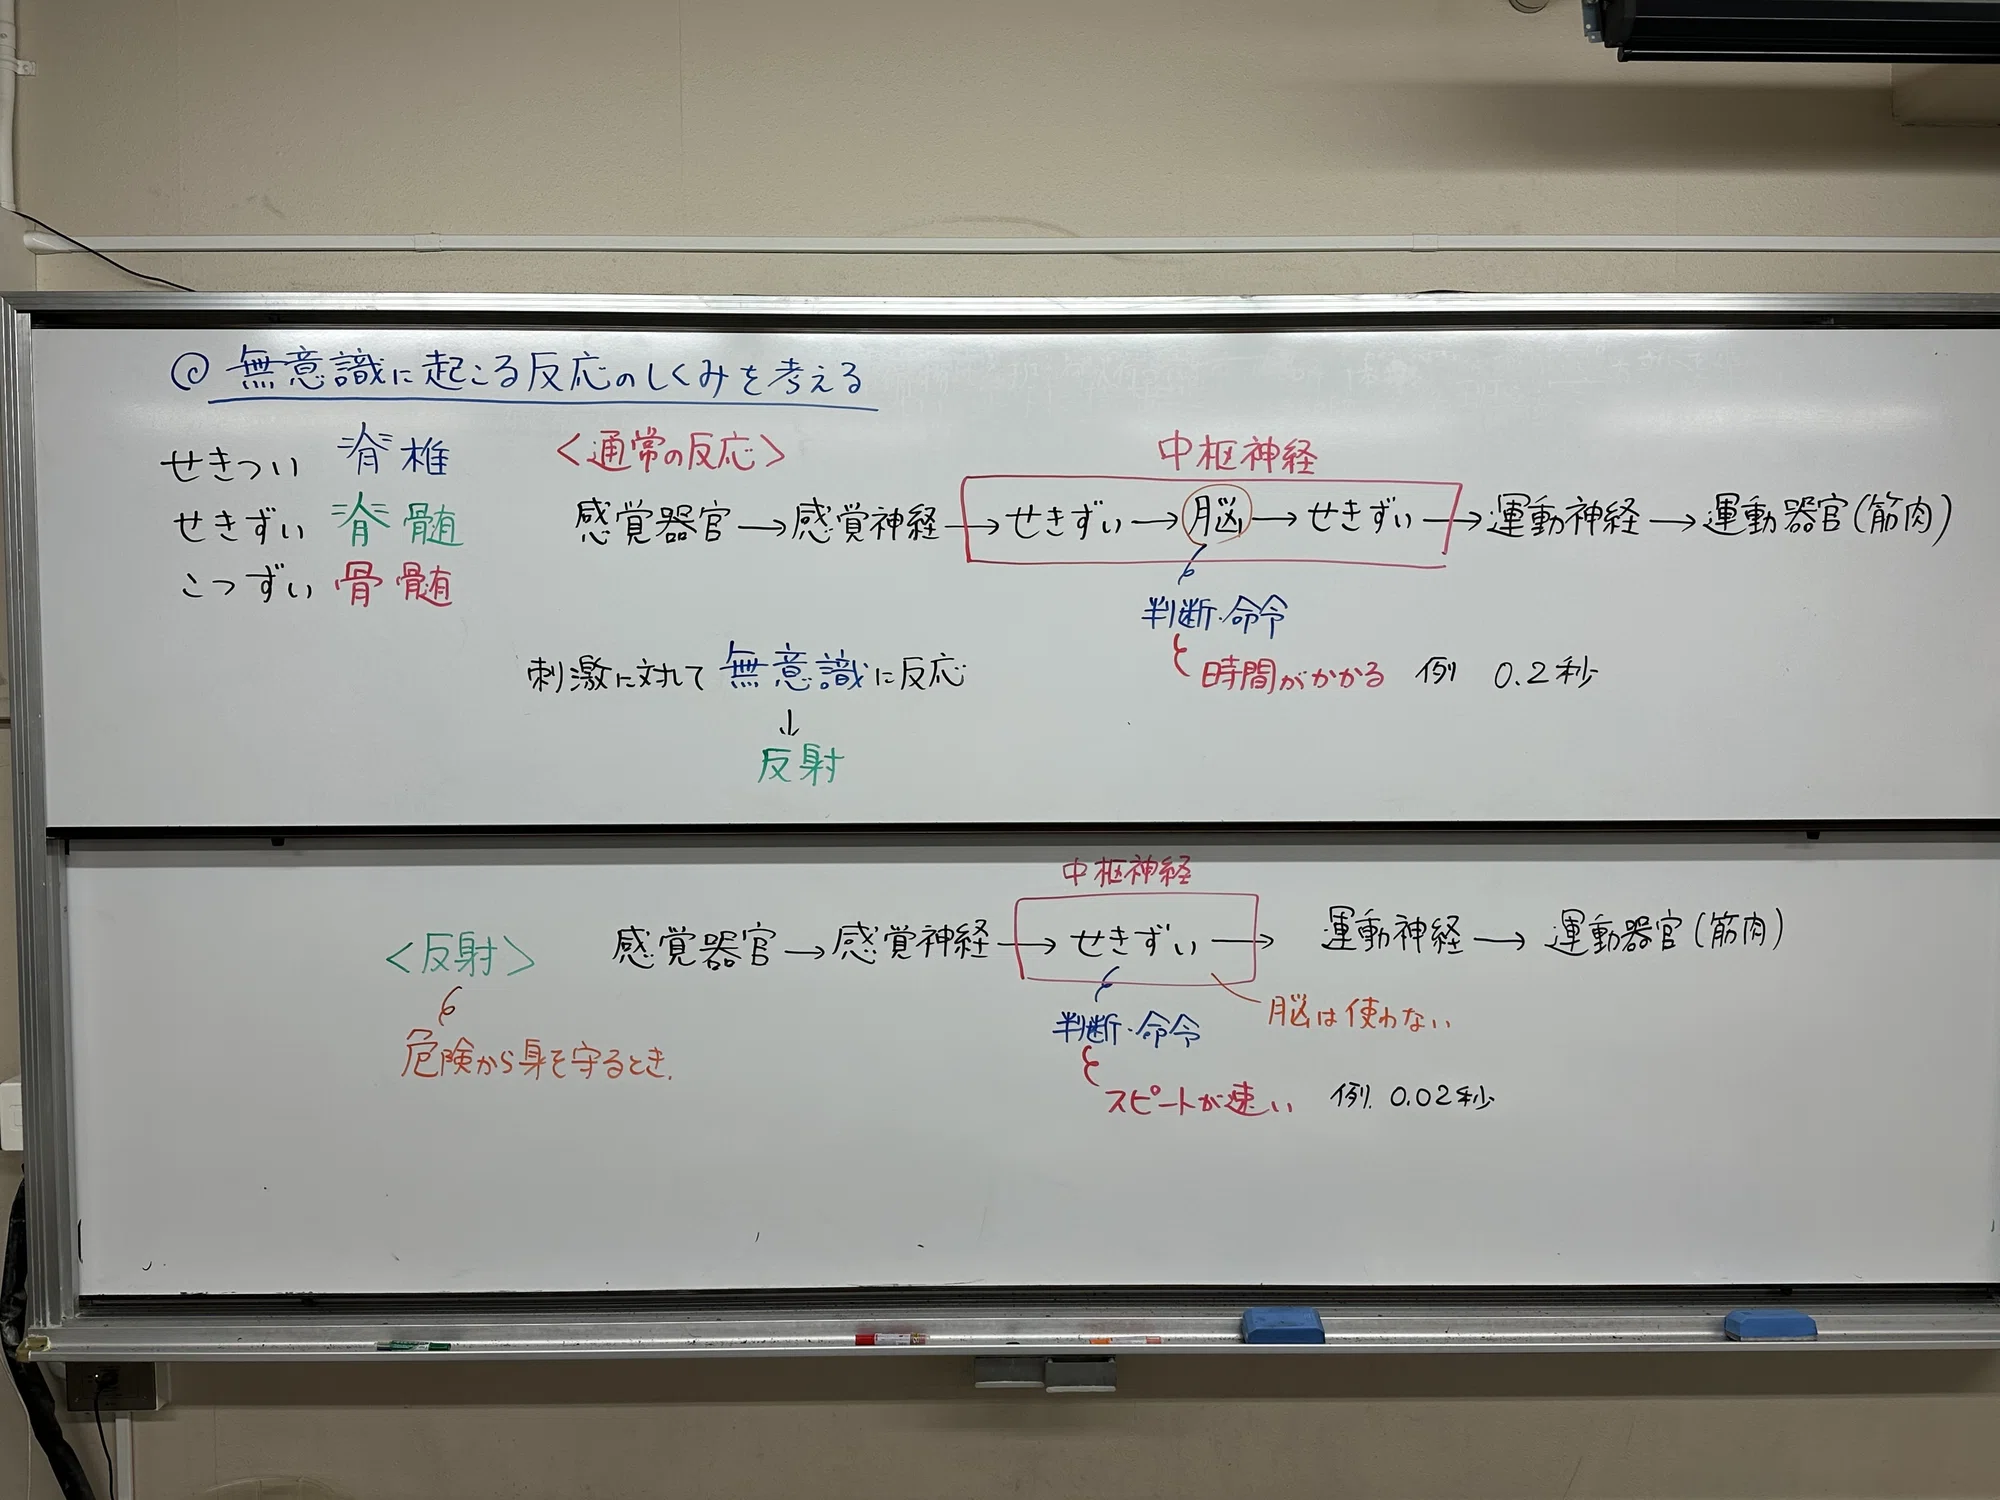 ◎ 無意識に起こる反応のしくみを考える
せきつい 脊椎
せきずい 脊髄
こつずい 骨髄
<通常の反応>
中枢神経
感覚器官→感覚神経→せきずい→脳→せきずい→運動神経→運動器官(筋肉)
判断・命令
時間がかかる 例 0.2秒
刺激に対して無意識に反応
↓
反射
中枢神経
<反射> 感覚器官→感覚神経→せきずい→運動神経→運動器官(筋肉)
危険から身を守るとき.
判断・命令
脳は使わない
スピートが速い 例. 0.02秒